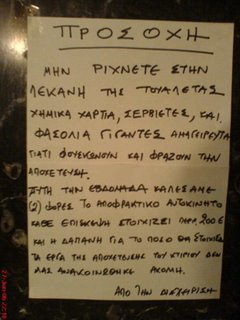 ΠΡΟΣΟΧΗ
ΜΗΝ ΡΙΧΝΕΤΕ ΣΤΗΝ
ΛΕΚΑΝΗ ΤΗΣ ΤΟΥΑΛΕΤΑΣ
ΧΗΜΙΚΑ ΧΑΡΤΙΑ, ΣΕΡΒΙΕΤΕΣ, ΚΑΙ
ΦΑΣΟΛΙΑ ΓΙΓΑΝΤΕΣ ΑΜΑΓΕΙΡΕΥΤΑ
ΓΙΑΤΙ ΦΟΥΣΚΩΝΟΥΝ ΚΑΙ ΦΡΑΖΟΥΝ ΤΗΝ
ΑΠΟΧΕΤΕΥΣΗ.
ΑΥΤΗ ΤΗΝ ΕΒΔΟΜΑΔΑ ΚΑΛΕΣΑΜΕ
(2) ΦΟΡΕΣ ΤΟ ΑΠΟΦΡΑΚΤΙΚΟ ΑΥΤΟΚΙΝΗΤΟ
ΚΑΘΕ ΕΠΙΣΚΕΨΗ ΣΤΟΙΧΙΖΕΙ ΠΕΡΙΠ. 200 €
ΚΑΙ Η ΔΑΠΑΝΗ ΓΙΑ ΤΟ ΠΟΣΟ ΘΑ ΣΤΟΙΧΙΣΟΥΝ
ΤΑ ΕΡΓΑ ΤΗΣ ΑΠΟΧΕΤΕΥΣΗΣ ΤΟΥ ΚΤΙΡΙΟΥ ΔΕΝ
ΜΑΣ ΑΝΑΚΟΙΝΩΘΗΚΕ ΑΚΟΜΗ.
ΑΠΟ ΤΗΝ ΔΙΑΧΕΙΡΙΣΗ